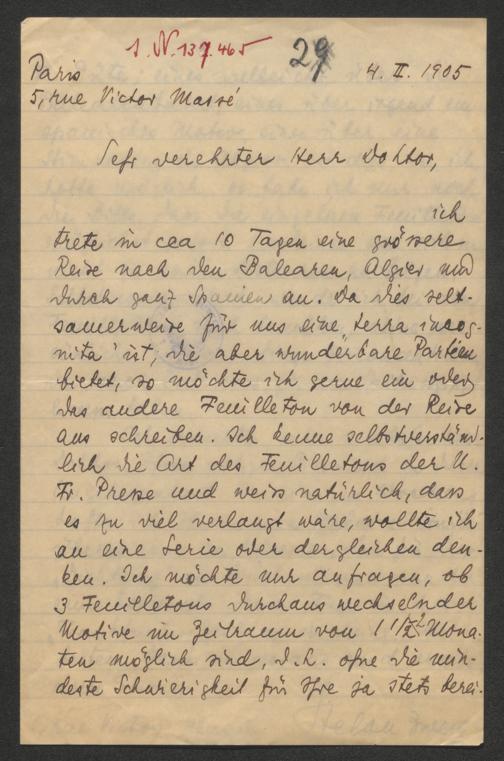 I. N. 137.465
29
Paris
4. II. 1905
5, rue Victor Massé
Sehr verehrter Herr Doktor,
ich
trete in cca 10 Tagen eine grössere
Reise nach den Balearen, Algier und
durch ganz Spanien an. Da dies selt-
samerweise für uns eine „terra incog-
nita" ist, die aber wunderbare Partien
bietet, so möchte ich gerne ein oder
das andere Feuilleton von der Reise
aus schreiben. Ich kenne selbstverständ-
lich die Art des Feuilletons der N.
Fr. Presse und weiss natürlich, dass
es zu viel verlangt wäre, wollte ich
an eine Serie oder dergleichen den-
ken. Ich möchte nur anfragen, ob
3 Feuilletons durchaus wechselnder
Motive im Zeitraum von 1 1/2 Mona-
ten möglich sind, d.h. ohne die min-
deste Schwierigkeit für Ihre ja stets berei-